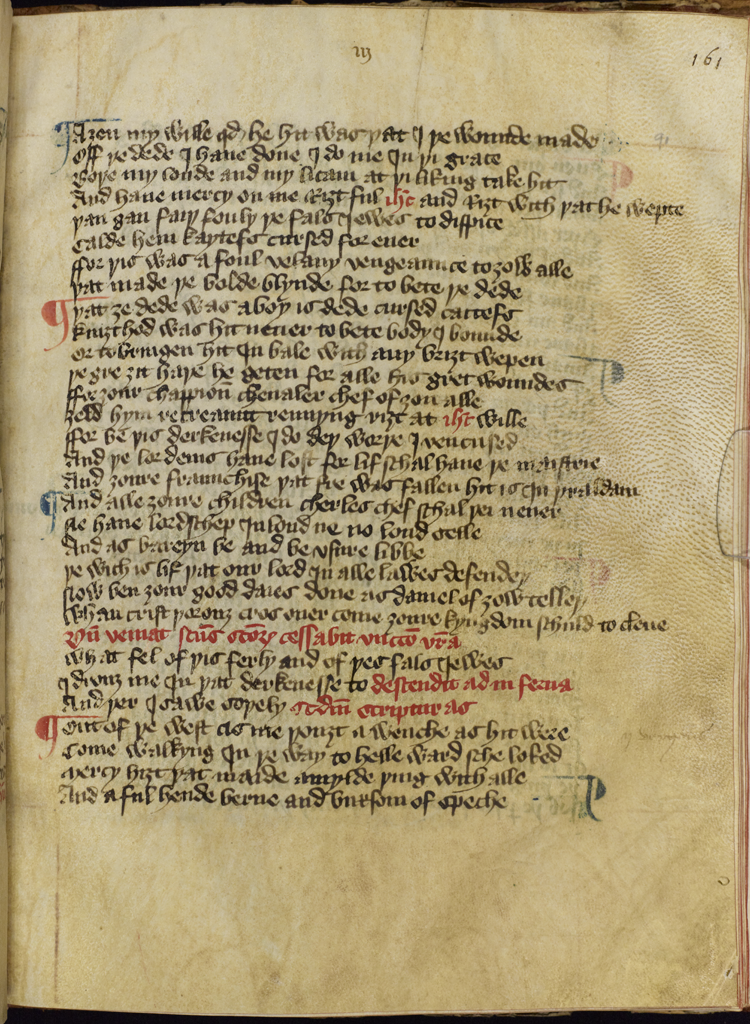 iij
161
¶ Aȝen my wille qd he hit was þat I þe wounde made
Off þe dede I haue done I do me In þi grace
Boþe my londe and my licam at þi liking take hit
And haue mercy on me Riȝt ful ihc and Riȝt with þat he wepte
þan gan faiþ fouly þe fals Iewes to dispice
Calde hem kaytefs cursed for euer
ffor þis was a foul velany vengeaunce to ȝow alle
þat made þe bolde blynde for to bete þe dede
¶ þat ȝe dede was a boy is dede cursed catefs
kniȝthod was hit neuer to bete body I bounde
or to bringen hit In bale with any briȝt wepen
þe gre ȝit haþe he geten for alle his gret woundes
ffor ȝour chappion chevaler chef of ȝou alle
ȝeld hym recreaunt rennyng riȝt at ihc wille
ffor be þis derkenesse I do dey worþe I vencused
And þe lordeins haue lost for lif schal haue þe maistrie
And ȝoure fraunchise þat fre was fallen hit is In þraldam
¶ And alle ȝoure children cherles chef schal þei neuer
Ne haue lordschep In lond ne no lond telle
And as bareyn be and be vsure libbe
þe with is lif þat our lord In alle lawes defendeþ
Now ben ȝour good daies done as daniel of ȝow telleþ
whan crist þoroȝ cros ouer come ȝoure kyngdom schuld to cleue
Cũ veniat scũs scorȝ cessabit vnctõ vrã
what fel of þis ferly and of þes fals Iewes
I droȝ me In þat derkenesse to descendit ad in ferna
And þer I sawe soþely scdũ scripturas
¶ Out of þe west as me þouȝt a wenche as hit were
Come walkyng In þe way to helle ward sche loked
Mercy hiȝt þat maide a mylde þing with alle
And a ful hende berne and buxsom of speche